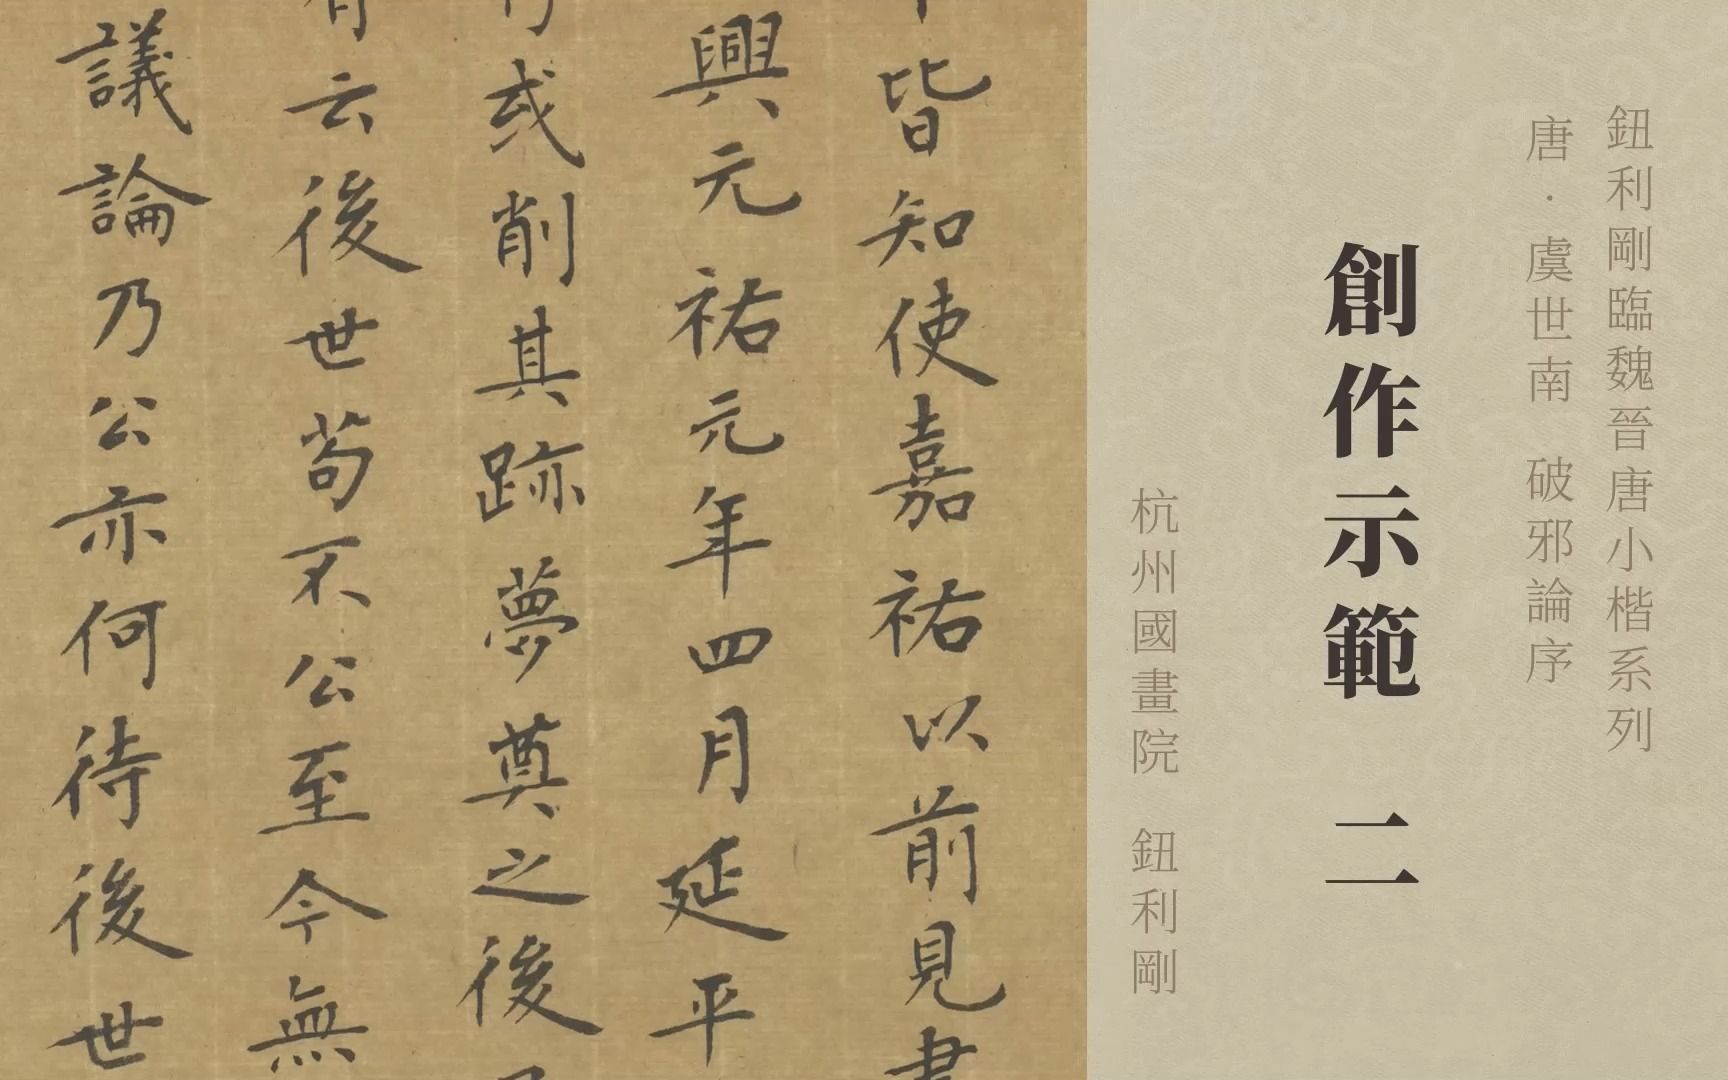 鈕利剛臨魏晉唐小楷系列
唐·虞世南 破邪論序
創作示範 二
杭州國畫院 鈕利剛
皆知使嘉祐以前見書
興元祐元年四月延平
或削其跡夢奠之後
有云後世苟不公至今無
議論乃公亦何待後世